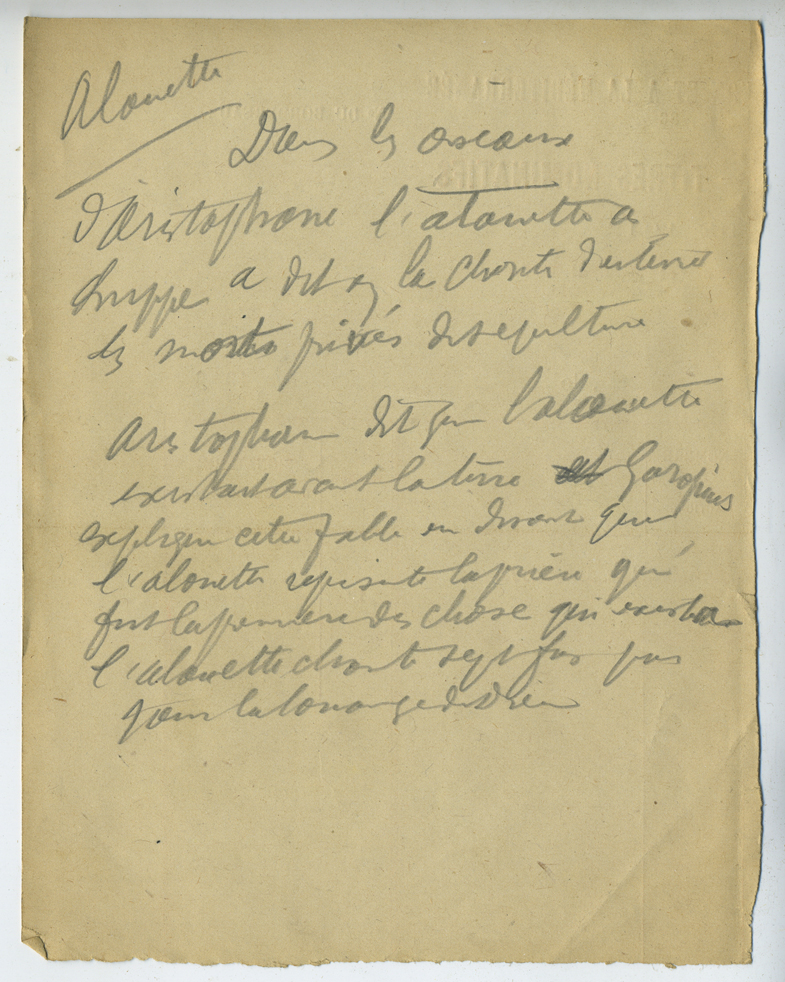 Alouette
Dans les oiseaux
d'Aristophane l'alouette a
huppe a dit on la charité d'enterrer
les morts privés de sépulture
Aristophane dit que l'alouette
existait avant la terre et
explique cette fable en disant que
l'alouette représente la prière qui
fut la première des chose qui exista
l'alouette chante sept fois par
jour la louange de Dieu